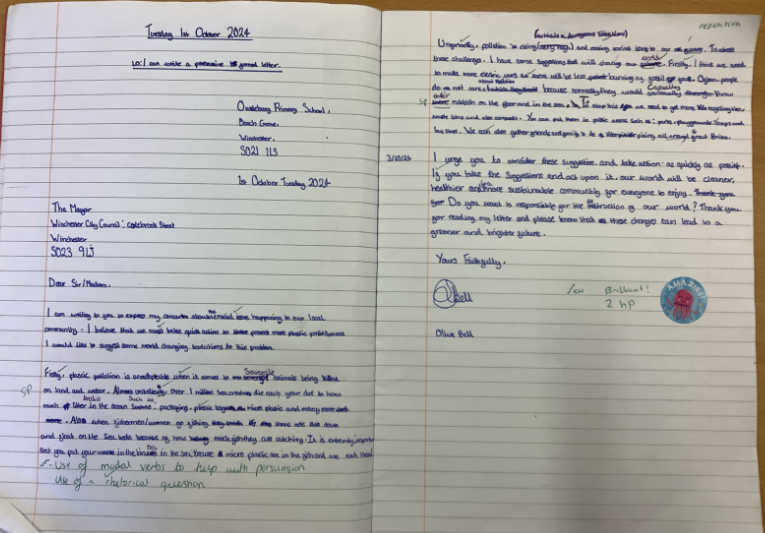 Tuesday 1st October 2024
LO: I can write a persuasive formal letter.
Owslebury Primary School,
Beech Grove,
Winchester
SO21 1LS
1st October Tuesday 2024
The Mayor
Winchester City Council: Colebrook Street
Winchester
SO23 9LJ
Dear Sir/Madam,
I am writing to you to express my concerns about the crucial issue happening to our local
community. I believe that we must take quick action to prevent more plastic pollution and
I would like to suggest some world changing solutions to this problem.
Firstly, plastic pollution is unacceptable when it comes to animals being killed
SP
on land and water. over 1 million sea creatures die each year due to how
much litter in the ocean such as: packaging, plastic micro plastic and many more
Also when fishermen/women go fishing some nets sink down
and float on the Sea beds because of how much fish they are catching. It is extremely important
that you put your in the bins in the sea, micro plastic are in the fish and we eat them
Use of modal verbs to help with persuasion
Use of a rhetorical question
repetition
(outside in dangerous situations)
pollution is rising and causing serious issues to our To address
these challenges. I have some suggestions that will change our world Firstly, I think we need
to make more electric cars so there will be less burning of fossil Often, people
do not care about pollution because normally they would casually throw
SP
their rubbish on the floor and in the sea. To stop this we need to get more like recycling bins,
bins and also compost. You can put them in public areas such as: parks, playgrounds, shops and
We can also gather friends and family to do a litter picking all around great Britain.
3/10/24
I urge you to consider these suggestions and take action: as quickly as possible.
If you take the suggestions and act upon it, our world will be cleaner,
healthier and more sustainable community for everyone to enjoy.
Do you want to responsible for the destruction of our world? Thank you
for reading my letter and please know that these changes can lead to a
greener and brighter future.
Yours Faithfully,
OBell
Brilliant!
2 hp
AMAZING!
Olive Bell